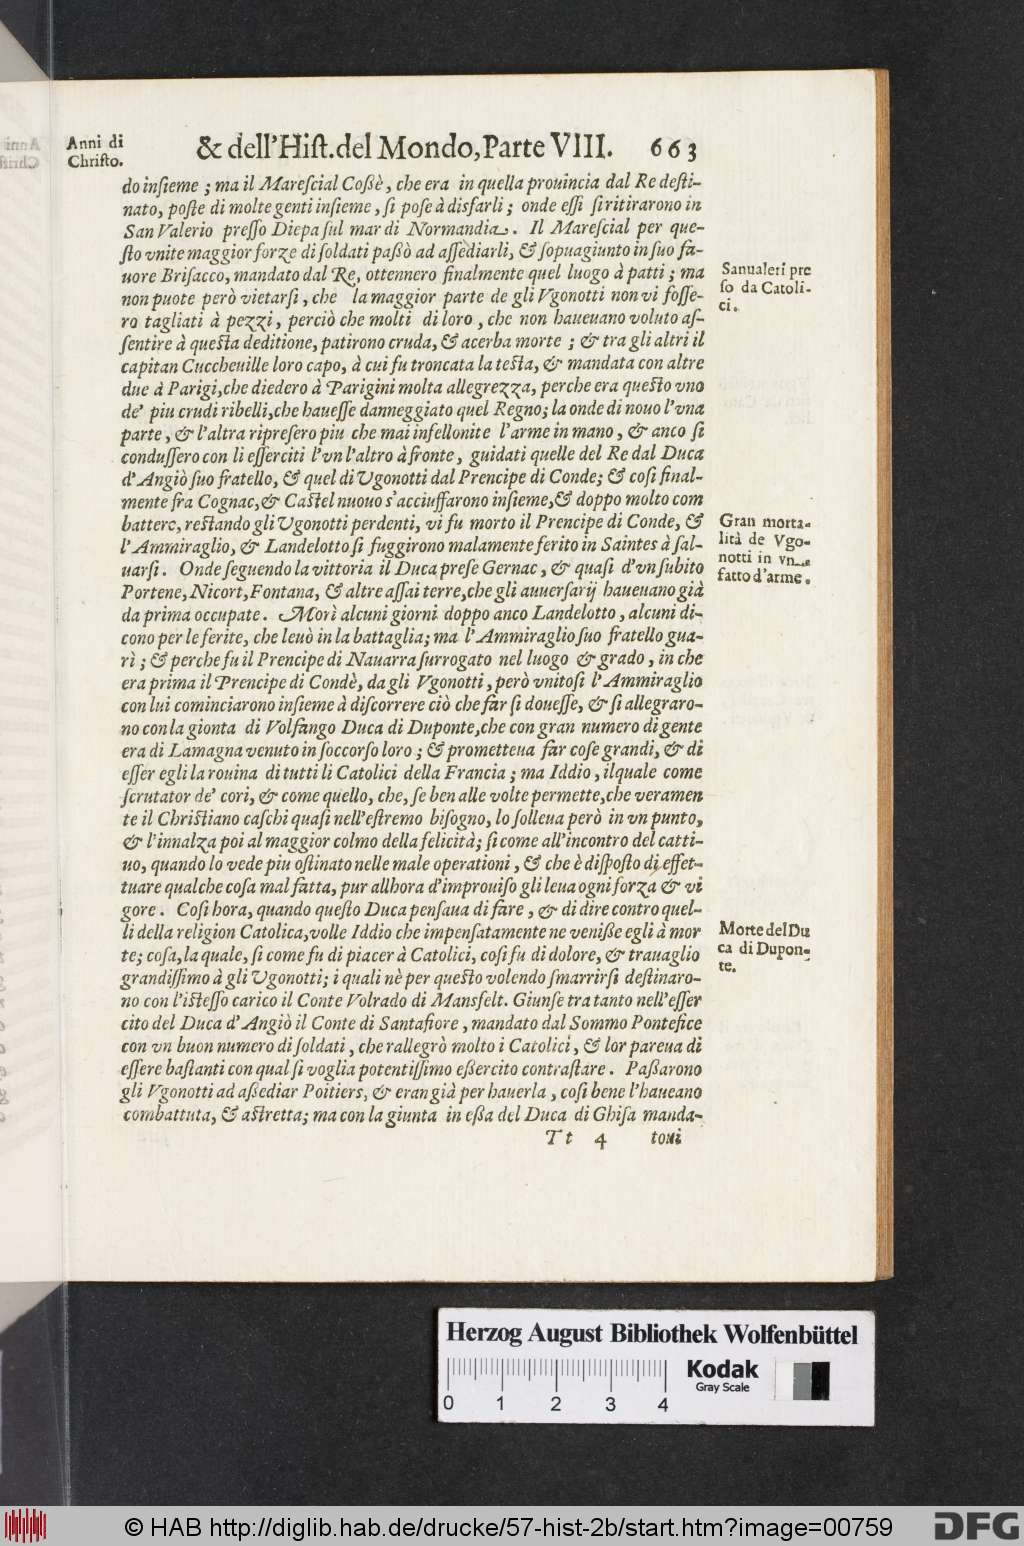 Anni di
Christo.
& dell'Hist. del Mondo, Parte VIII. 663
do insieme; ma il Marescial Cossè, che era in quella prouincia dal Re desti-
nato, poste di molte genti insieme, si pose à disfarli; onde essi si ritirarono in
San Valerio presso Diepa sul mar di Normandia. Il Marescial per que-
sto vnite maggior forze di soldati passò ad assediarli, & sopuagiunto in suo fa-
uore Brisacco, mandato dal Re, ottennero finalmente quel luogo à patti; ma
non puote però vietarsi, che la maggior parte de gli Vgonotti non vi fosse-
ro tagliati à pezzi, perciò che molti di loro, che non haueuano voluto as-
sentire à questa deditione, patirono cruda, & acerba morte; & tra gli altri il
capitan Cuccheuille loro capo, à cui fu troncata la testa, & mandata con altre
due à Parigi, che diedero à Parigini molta allegrezza, perche era questo vno
de' piu crudi ribelli, che hauesse danneggiato quel Regno; la onde di nouo l'vna
parte, & l'altra ripresero piu che mai infellonite l'arme in mano, & anco si
condussero con li esserciti l'vn l'altro à fronte, guidati quelle del Re dal Duca
d'Angiò suo fratello, & quel di Vgonotti dal Prencipe di Conde; & cosi final-
mente fra Cognac, & Castel nuouo s'acciuffarono insieme, & doppo molto com
battere, restando gli Vgonotti perdenti, vi fu morto il Prencipe di Conde, &
l'Ammiraglio, & Landelotto si fuggirono malamente ferito in Saintes à sal-
uarsi. Onde seguendo la vittoria il Duca prese Gernac, & quasi d'vn subito
Portene, Nicort, Fontana, & altre assai terre, che gli auuersarij haueuano già
da prima occupate. Morì alcuni giorni doppo anco Landelotto, alcuni di-
cono per le ferite, che leuò in la battaglia; ma l'Ammiraglio suo fratello gua-
rì; & perche fu il Prencipe di Nauarra surrogato nel luogo & grado, in che
era prima il Prencipe di Condè, da gli Vgonotti, però vnitosi l'Ammiraglio
con lui cominciarono insieme à discorrere ciò che far si douesse, & si allegraro-
no con la gionta di Volfango Duca di Duponte, che con gran numero di gente
era di Lamagna venuto in soccorso loro; & prometteua far cose grandi, & di
esser egli la rouina di tutti li Catolici della Francia; ma Iddio, ilquale come
scrutator de' cori, & come quello, che, se ben alle volte permette, che veramen
te il Christiano caschi quasi nell'estremo bisogno, lo solleua però in vn punto,
& l'innalza poi al maggior colmo della felicità; si come all'incontro del catti-
uo, quando lo vede piu ostinato nelle male operationi, & che è disposto di effet-
tuare qualche cosa mal fatta, pur allhora d'improuiso gli leua ogni forza & vi
gore. Cosi hora, quando questo Duca pensaua di fare, & di dire contro quel-
li della religion Catolica, volle Iddio che impensatamente ne venisse egli à mor
te; cosa, la quale, si come fu di piacer à Catolici, cosi fu di dolore, & trauaglio
grandissimo à gli Vgonotti; i quali nè per questo volendo smarrirsi destinaro-
no con l'istesso carico il Conte Volrado di Mansfelt. Giunse tra tanto nell'esser
cito del Duca d'Angiò il Conte di Santafiore, mandato dal Sommo Pontefice
con vn buon numero di soldati, che rallegrò molto i Catolici, & lor pareua di
essere bastanti con qual si voglia potentissimo essercito contrastare. Passarono
gli Vgonotti ad assediar Poitiers, & eran già per hauerla, cosi bene l'haueano
combattuta, & astretta; ma con la giunta in essa del Duca di Ghisa manda-
Tt 4 toui
Sanualeri pre
so da Catoli-
ci.
Gran morta-
lità de Vgo-
notti in vn
fatto d'arme.
Morte del Du
ca di Dupon-
te.
Herzog August Bibliothek Wolfenbüttel
Kodak
Gray Scale
0 1 2 3 4
© HAB http://diglib.hab.de/drucke/57-hist-2b/start.htm?image=00759
DFG